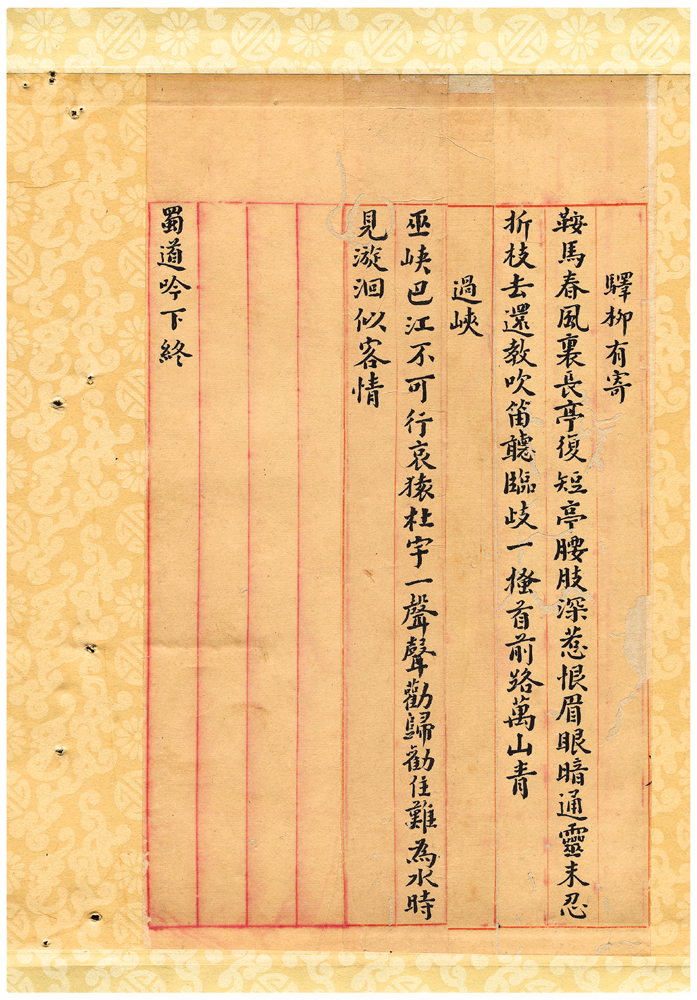 驛柳有寄
鞍馬春風裏長亭復短亭腰肢深惹恨眉眼暗通靈未忍
折枝去還教吹笛聽臨歧一搔首前路萬山青
過峽
巫峽巴江不可行哀猿杜宇一聲聲勸歸勸住難為水時
見漩洄似客情
蜀道吟下終